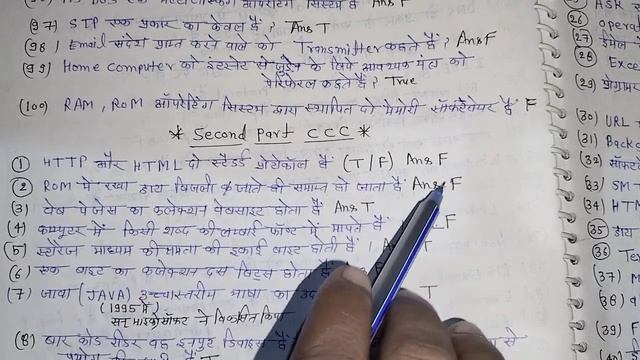 ऑपरेटिंग सिस्टम है Ans F
(97) STP एक प्रकार का केबल है, Ans T
(98) Email संदेश प्राप्त करने वाले को Transmitter कहते हैं, Ans F
(99) Home Computer को इंटरनेट से जुड़ने के लिये आवश्यक यंत्र को
पेरिफेरल कहते हैं, True
(100) RAM, ROM ऑपरेटिंग सिस्टम द्वारा स्थापित दो मेमोरी सॉफ्टवेयर है F
* Second Part CCC *
(1) HTTP और HTML दो स्टैंडर्ड प्रोटोकॉल है (T/F) Ans F
(2) ROM में रखा डाटा बिजली के जाते ही समाप्त हो जाता है Ans F
(3) वेब पेजेस का कलेक्शन वेबसाइट होता है Ans T
(4) कम्प्यूटर में किसी शब्द की लम्बाई फॉन्ट में मापते हैं F
(5) स्टोरेज माध्यम की क्षमता की इकाई बाइट होती है। T
(6) एक बाइट का कलेक्शन दस बिट्स होता है
(7) जावा (JAVA) उच्चस्तरीय भाषा का T
(1995 में)
सन माइक्रोसॉफ्ट ने विकसित किया
(8) बार कोड रीडर वह इनपुट डिवाइस है से
(26
operat
(27) ईमेल
(28) Exce
(29) प्रोग्राम
(30) URL
(31) Back
(32) सॉफ्ट
(33) SM
(34) HTM
(35) डाय
(36) Te
(37) M
(38)
(39)
(40)